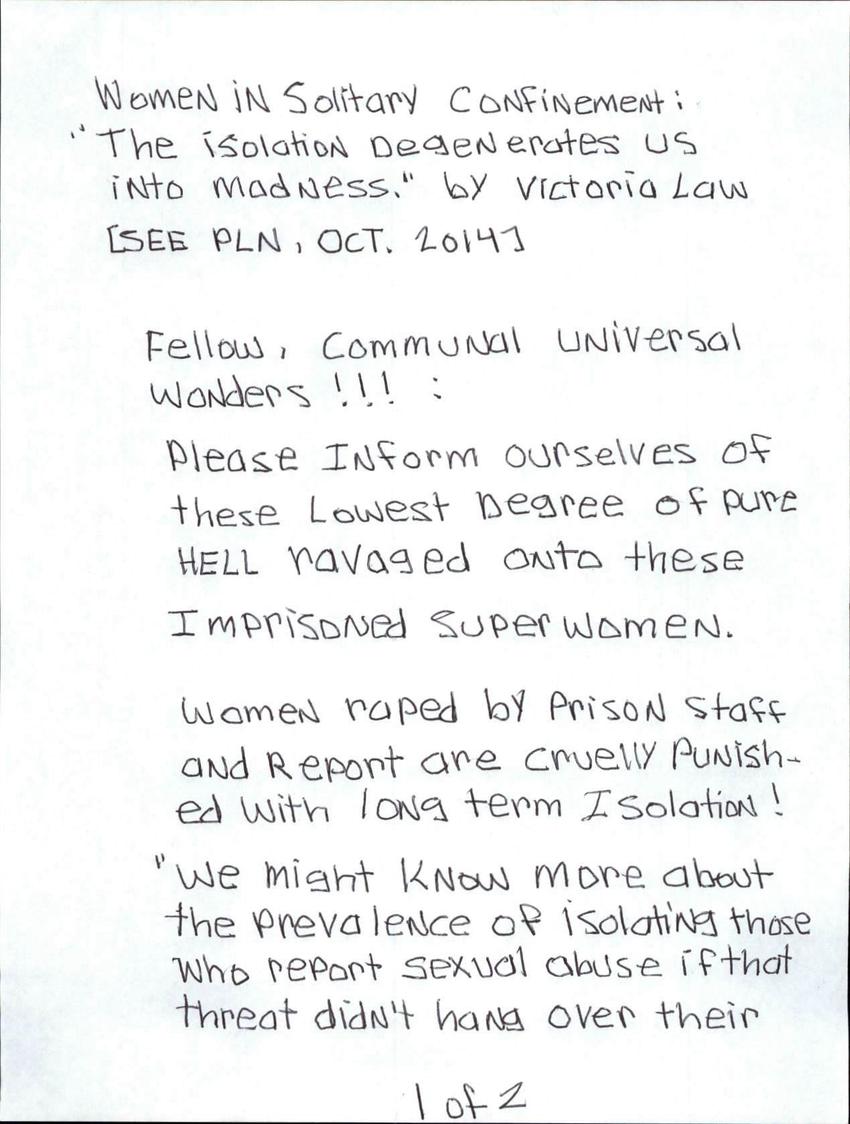 Women in Solitary Confinement:
"The isolation Degenerates us
into madness." by Victoria Law
[SEE PLN, OCT. 2014]
Fellow, Communal Universal
Wonders!!! :
Please Inform ourselves of
these Lowest Degree of pure
HELL ravaged onto these
Imprisoned Superwomen.
Women raped by Prison Staff
and Report are cruelly Punish-
ed with long term Isolation!
"We might know more about
the prevalence of isolating those
who report sexual abuse if that
threat didn't hang over their
1 of 2